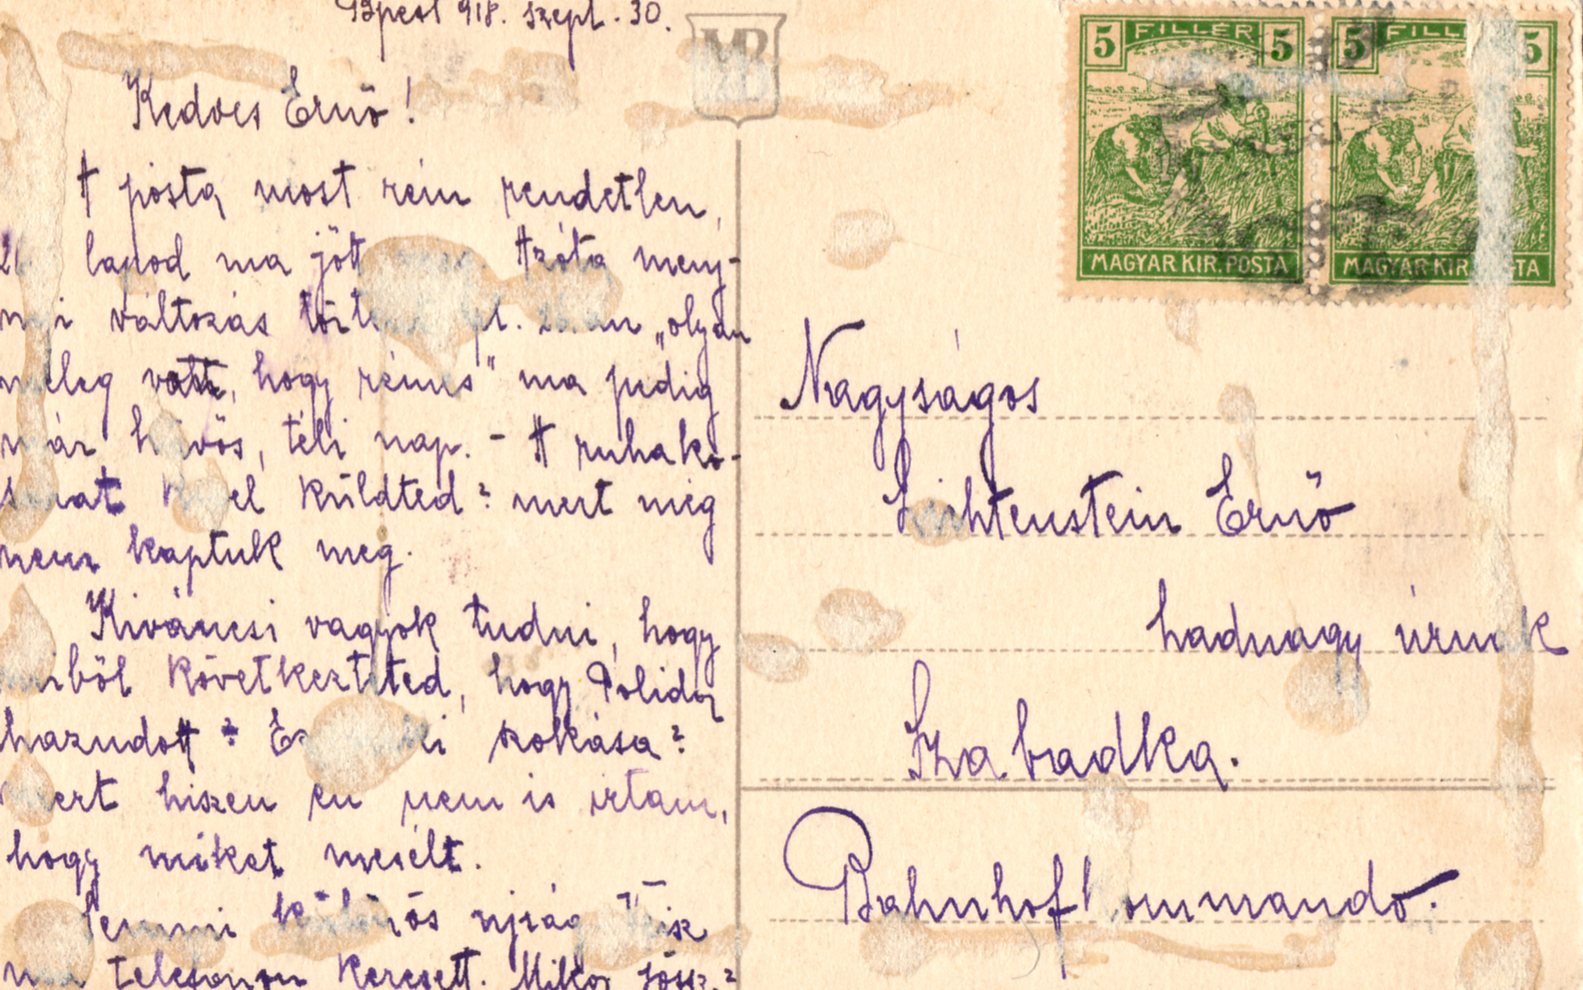 Bpest 918. szept. 30.
Kedves Ernő!
A posta most rém rendetlen,
lapod ma jött Azóta meny-
nyi változás pl. 26.-án „olyan
meleg volt, hogy rémes" ma pedig
már hűvös, téli nap. - A ruhako-
sarat el küldted? mert még
nem kaptuk meg.
Kiváncsi vagyok tudni, hogy
miből következteted, hogy Polidor
hazudott? szokása?
mert hiszen én nem is irtam,
hogy miket mesélt.
Semmi különös ujság
ma telefonon keresett. Mikor jössz?
MB
5 FILLÉR 5
MAGYAR KIR. POSTA
5 FILLÉR 5
MAGYAR KIR. POSTA
Nagyságos
Lichtenstein Ernő
hadnagy úrnak
Szabadka.
Bahnhofkommando.